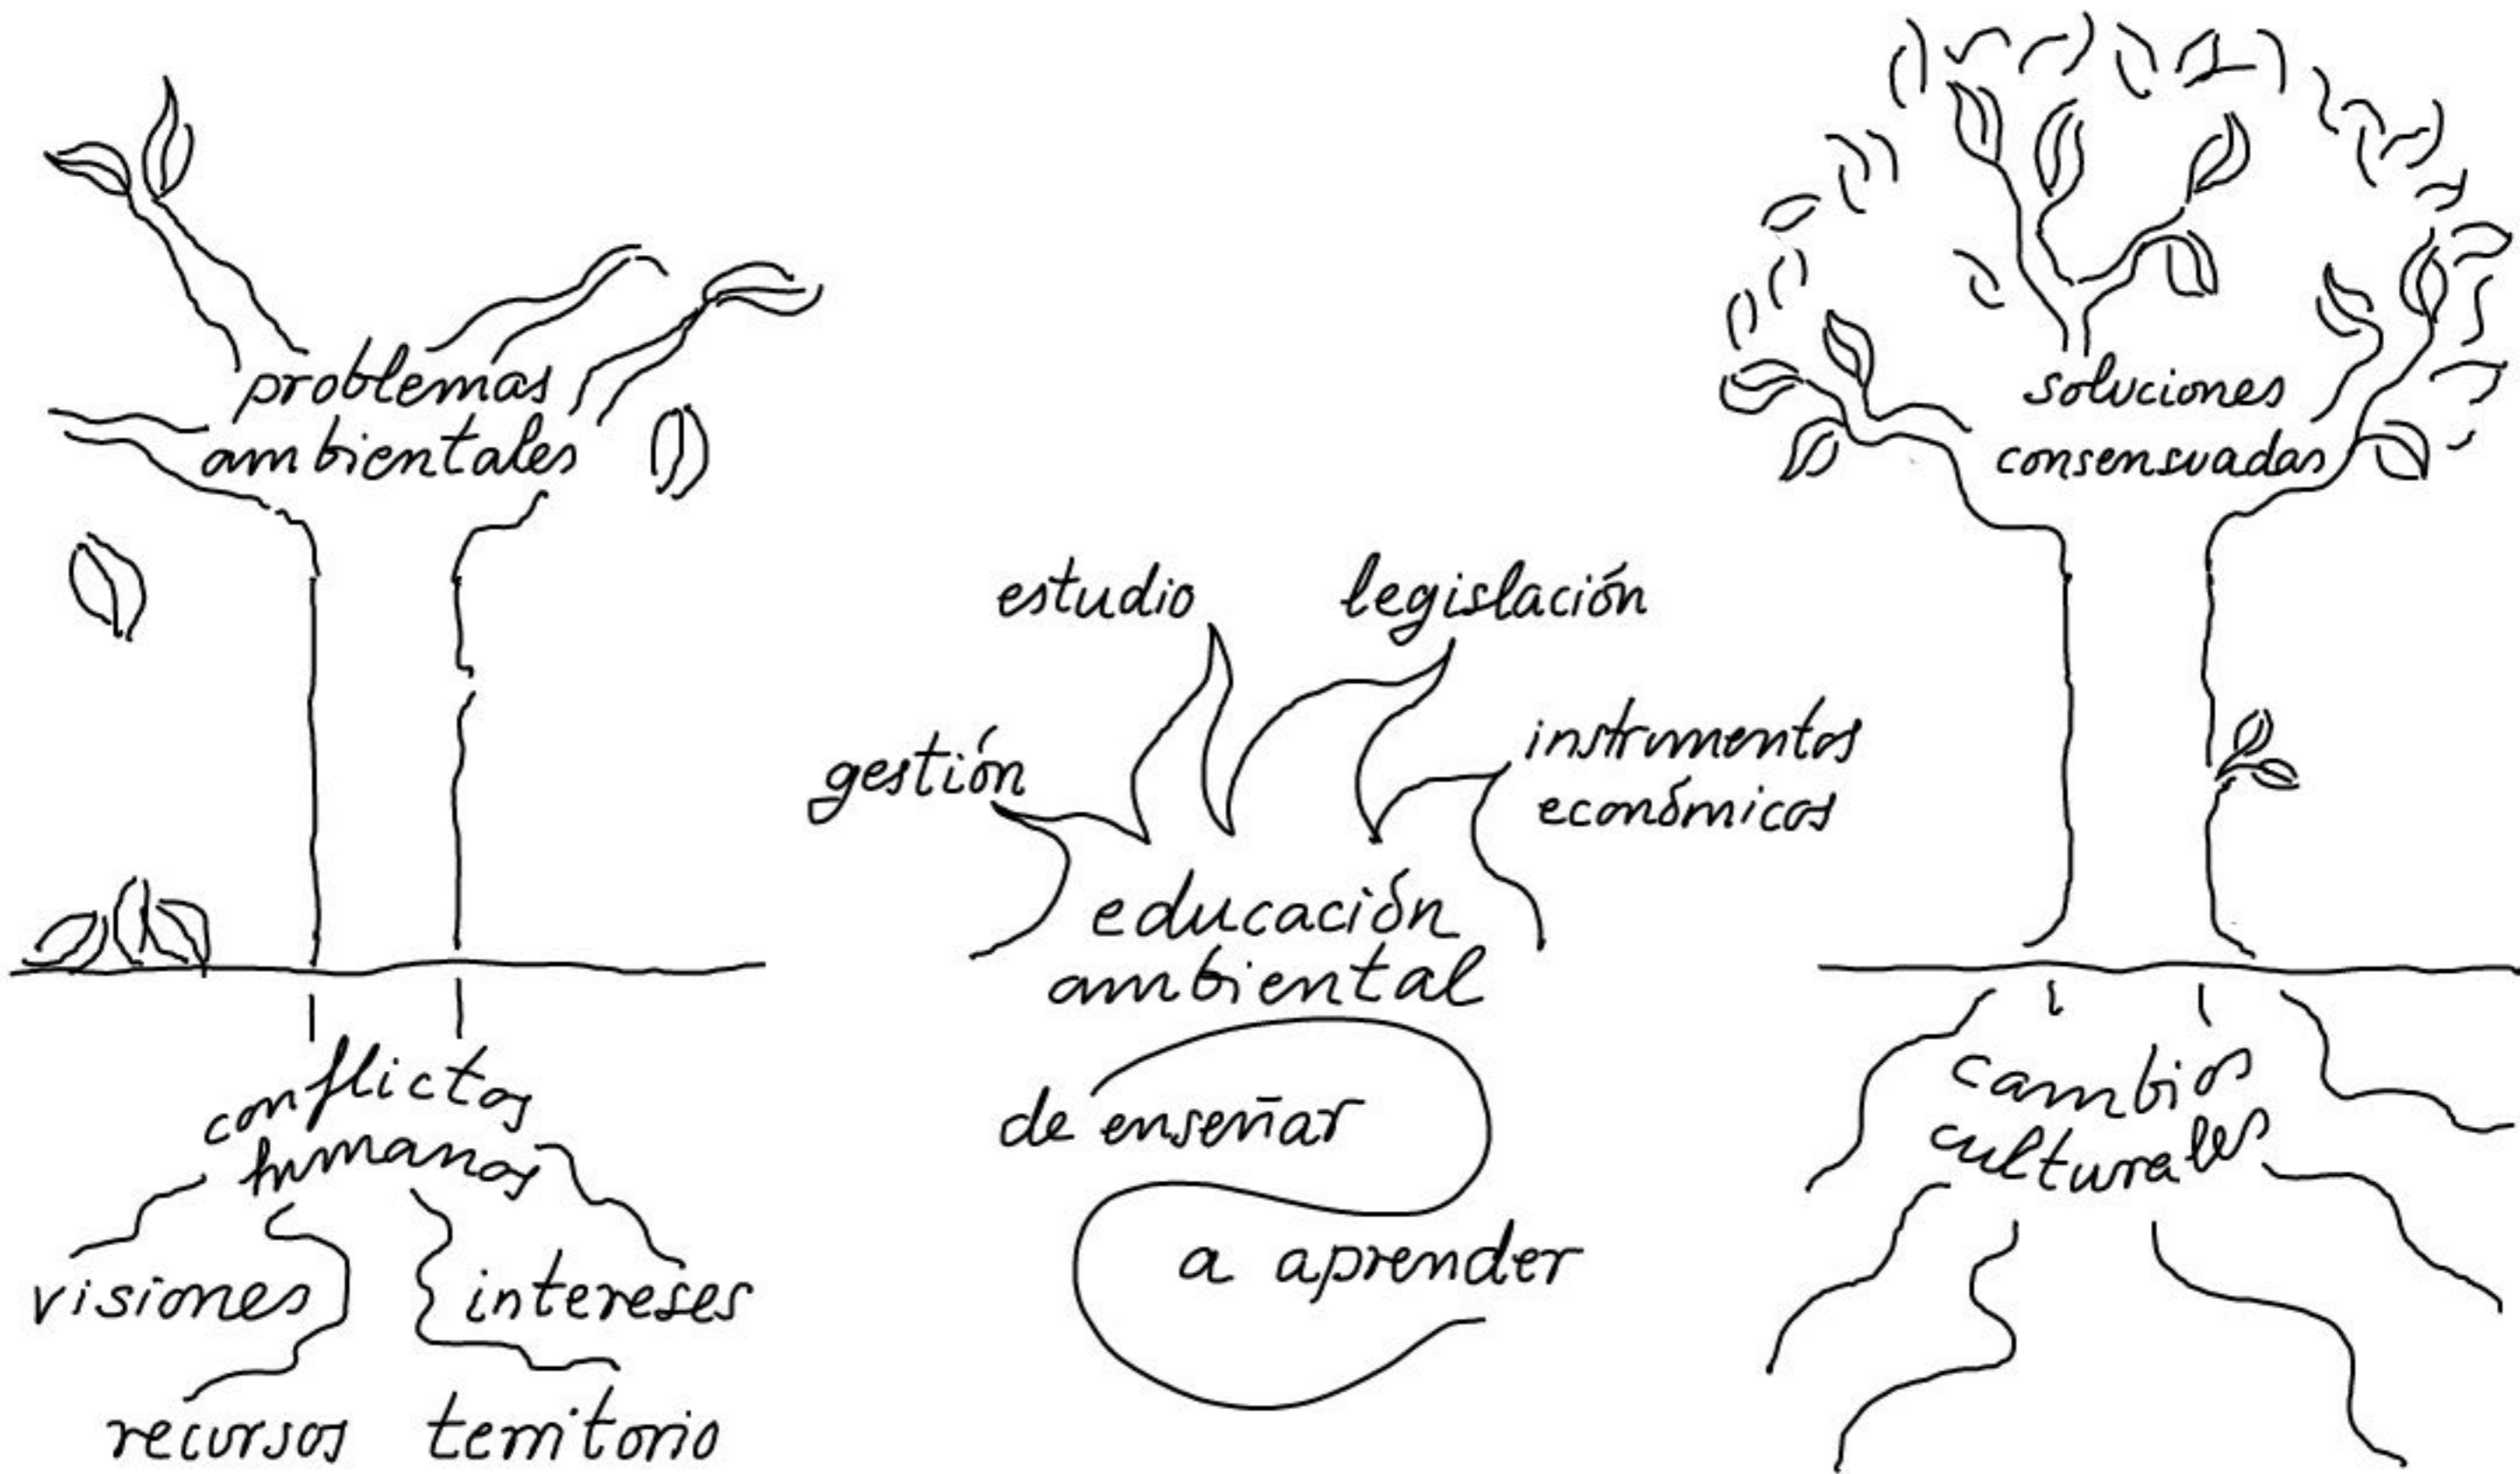 problemas
ambientales
conflictos
humanos
visiones
intereses
recursos
territorio
estudio
legislación
gestión
instrumentos
económicos
educación
ambiental
de enseñar
a aprender
soluciones
consensuadas
cambios
culturales